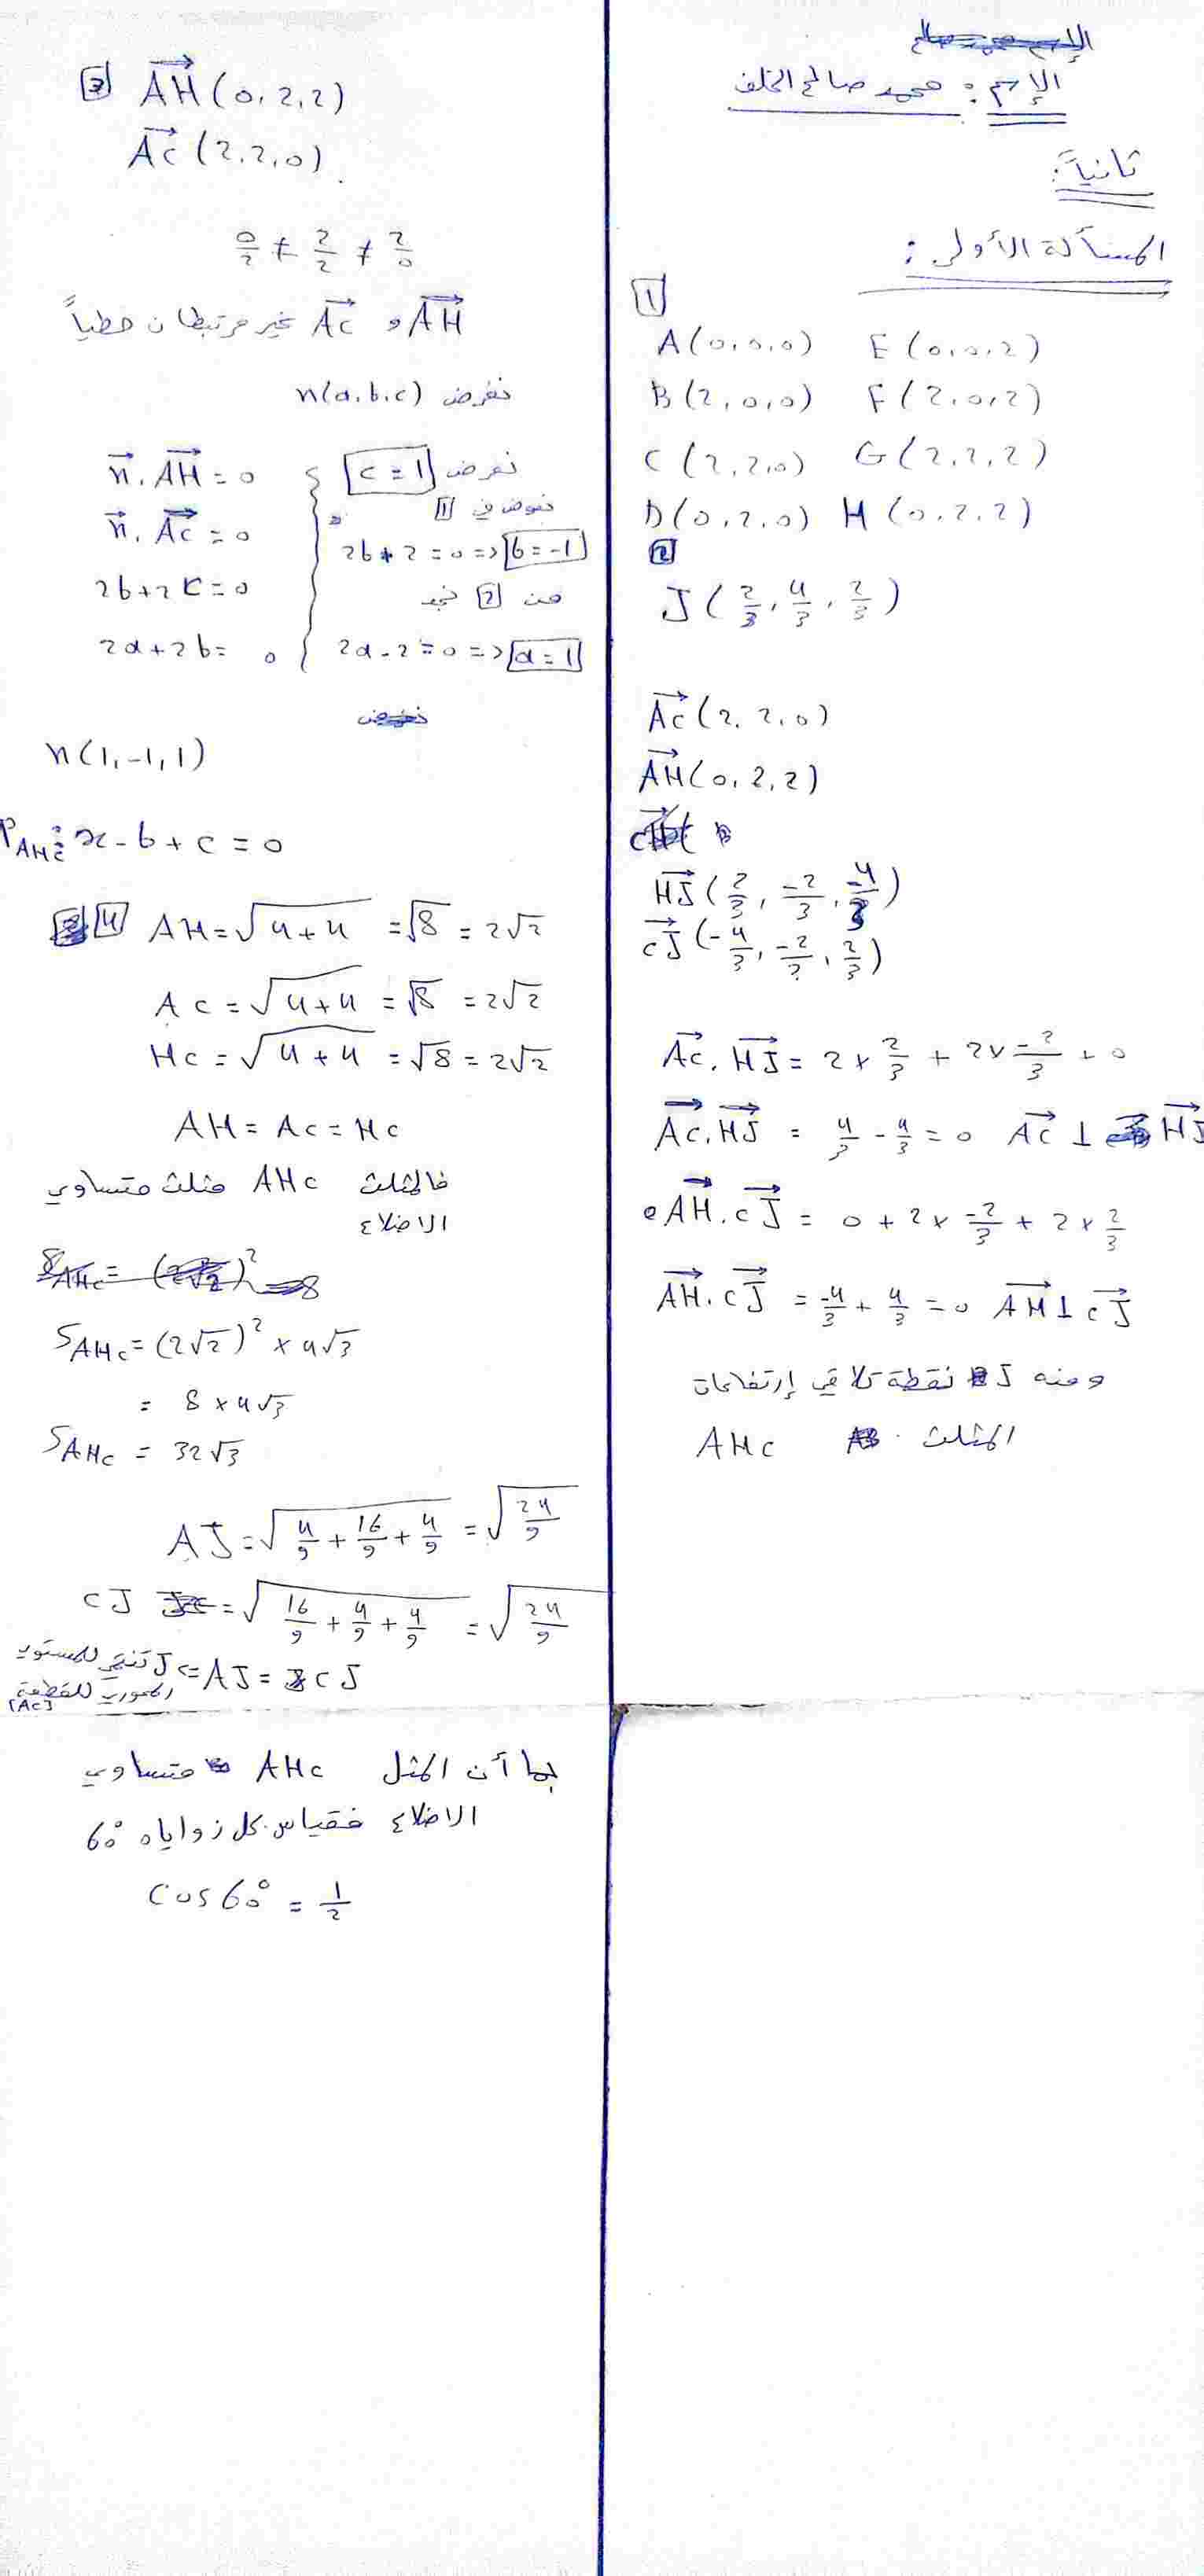 الإسم: محمد صالح الخلف
ثانياً:
المسألة الأولى:
1
A(0,0,0) E(0,0,2)
B(2,0,0) F(2,0,2)
C(2,2,0) G(2,2,2)
D(0,2,0) H(0,2,2)
2
J(2/3, 4/3, 2/3)
AC(2,2,0)
AH(0,2,2)
HJ(2/3, -2/3, -4/3)
CJ(-4/3, -2/3, 2/3)
AC.HJ = 2×2/3 + 2×-2/3 + 0
AC.HJ = 4/3 - 4/3 = 0 AC ⊥ HJ
AH.CJ = 0 + 2×-2/3 + 2×2/3
AH.CJ = -4/3 + 4/3 = 0 AH ⊥ CJ
ومنه J نقطة تلاقي إرتفاعات
المثلث AHC
3 AH(0,2,2)
AC(2,2,0)
0/2 ≠ 2/2 ≠ 2/0
AH و AC غير مرتبطان خطياً
نفرض n(a,b,c)
n.AH = 0
n.AC = 0
2b+2c=0
2a+2b=0
نفرض c=1
نعوض في 1
2b+2=0 => b=-1
من 2 نجد
2a-2=0 => a=1
n(1,-1,1)
P AHC: x-b+c=0
4 AH=√4+4 =√8 = 2√2
AC=√4+4 = √8 = 2√2
HC=√4+4 = √8 = 2√2
AH = AC = HC
فالمثلث AHC مثلث متساوي
الاضلاع
S AHC = (2√2)² × 4√3
= 8 × 4√3
S AHC = 32√3
AJ=√4/9+16/9+4/9 = √24/9
CJ =√16/9+4/9+4/9 = √24/9
AJ = CJ => J تنتمي للمستوي
المحوري للقطعة
[AC]
بما أن المثل AHC متساوي
الاضلاع فقياس كل زواياه 60°
cos60° = 1/2